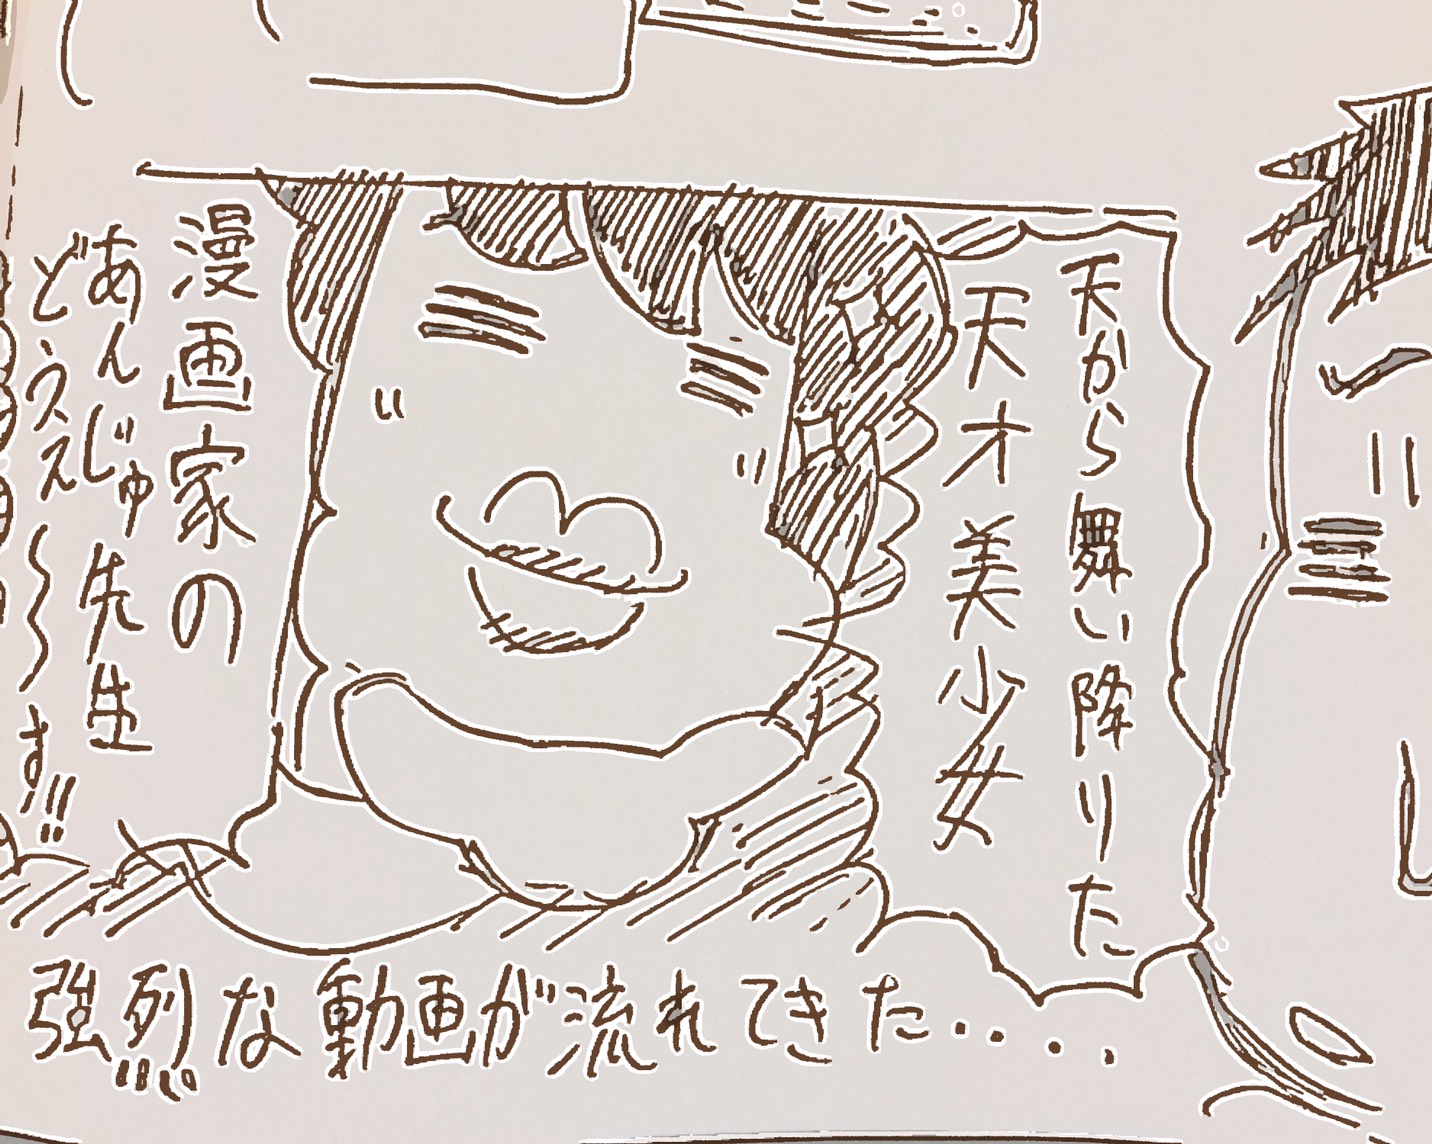 天から舞い降りた
天才美少女
漫画家の
あんじゅ先生
どうえ〜〜す!!
強烈な動画が流れてきた・・・・